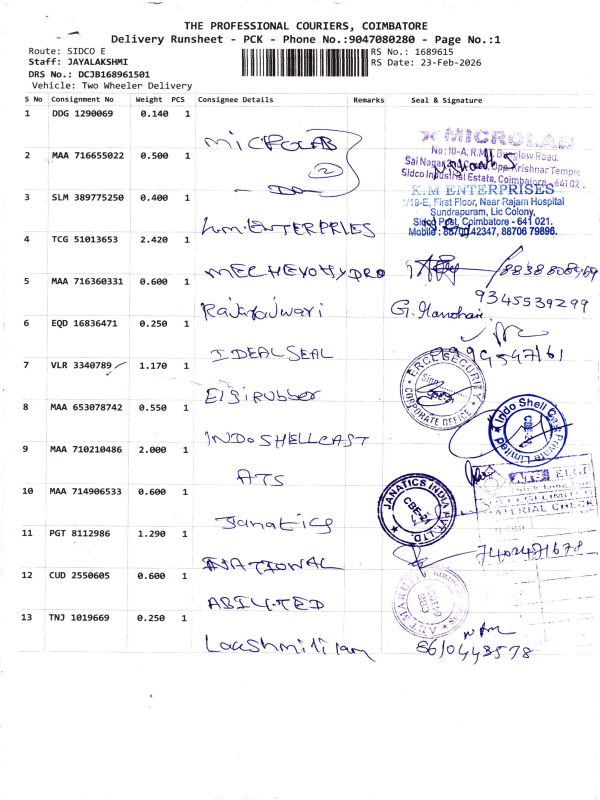 THE PROFESSIONAL COURIERS, COIMBATORE
Delivery Runsheet - PCK - Phone No.:9047080280 - Page No.:1
Route: SIDCO E
RS No.: 1689615
Staff: JAYALAKSHMI
RS Date: 23-Feb-2026
DRS No.: DCJB168961501
Vehicle: Two Wheeler Delivery
S No Consignment No Weight PCS Consignee Details Remarks Seal & Signature
1 DDG 1290069 0.140 1 MICROLAB
MICROLAB
No:10-A, R.M. Bunglow Road,
2 MAA 716655022 0.500 1 (2) -Do-
Sai Nagar Opp. Krishnar Temple
Sidco Industrial Estate, Coimbatore - 641 021.
K.M ENTERPRISES
3 SLM 389775250 0.400 1 k.m.ENTERPRIES
1/19-E, First Floor, Near Rajam Hospital
Sundrapuram, Lic Colony,
Sidco Post, Coimbatore - 641 021.
Mobile : 88700 42347, 88706 79896.
4 TCG 51013653 2.420 1 MECHEVOHYDRO
5 MAA 716360331 0.600 1 Rajarajuwari
9345539299
G. Manohari
6 EQD 16836471 0.250 1 IDEAL SEAL
7 VLR 3340789 1.170 1 Elgirubber
E.R.C.L SECURITY
CORPORATE OFFICE
8 MAA 653078742 0.550 1 INDOSHELLCAST
Indo Shell Cast Private Limited
CBE-21
9 MAA 710210486 2.000 1 ATS
ELGI
MATERIAL CHECK
10 MAA 714906533 0.600 1 Janatics
JANATICS INDIA PVT. LTD.
CBE-21
11 PGT 8112986 1.290 1 NATIONAL
7402471678
12 CUD 2550605 0.600 1 ABILITED
13 TNJ 1019669 0.250 1 Lakshmi ilam
8610443578